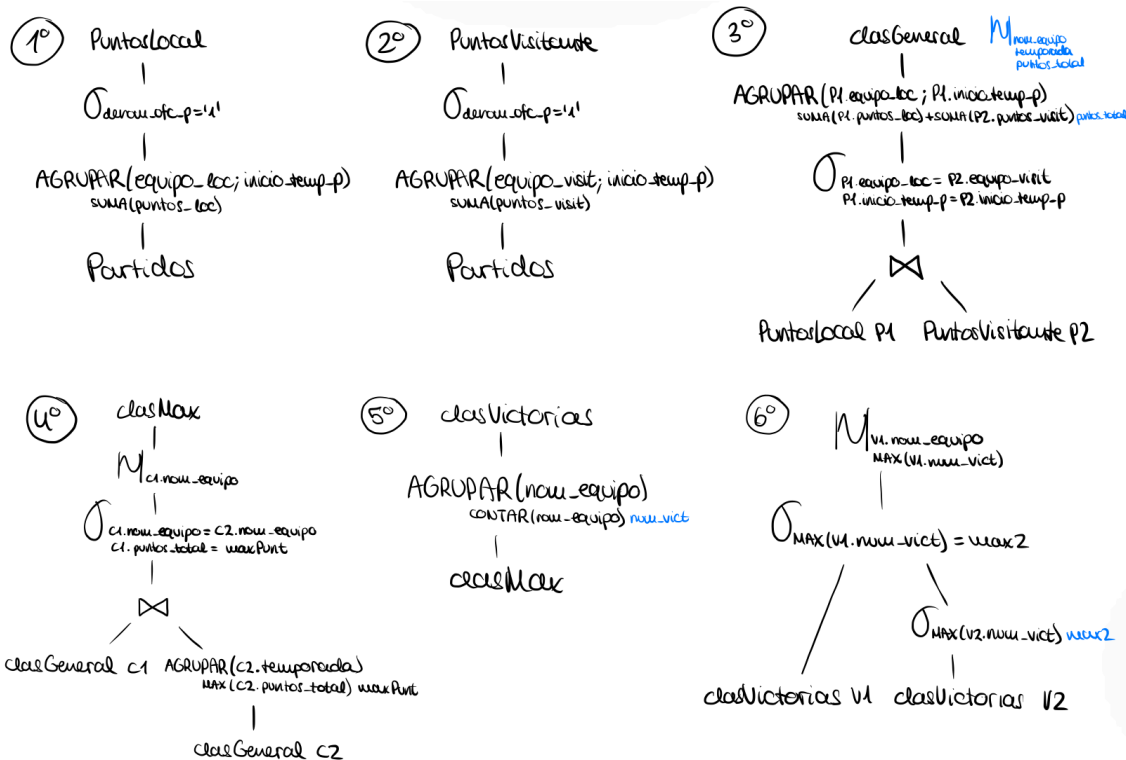 1º
PuntosLocal
σ denom_ofc_p='1'
AGRUPAR(equipo_loc; inicio_temp_p)
SUMA(puntos_loc)
Partidos
2º
PuntosVisitante
σ denom_ofc_p='1'
AGRUPAR(equipo_visit; inicio_temp_p)
SUMA(puntos_visit)
Partidos
3º
clasGeneral
Π nom_equipo
temporada
puntos_total
AGRUPAR(P1.equipo_loc; P1.inicio_temp_p)
SUMA(P1.puntos_loc)+SUMA(P2.puntos_visit) puntos_total
σ P1.equipo_loc = P2.equipo_visit
P1.inicio_temp_p = P2.inicio_temp_p
⋈
PuntosLocal P1 PuntosVisitante P2
4º
clasMax
Π C1.nom_equipo
σ C1.nom_equipo = C2.nom_equipo
C1.puntos_total = maxPunt
⋈
clasGeneral C1 AGRUPAR(C2.temporada)
MAX(C2.puntos_total) maxPunt
clasGeneral C2
5º
clasVictorias
AGRUPAR(nom_equipo)
CONTAR(nom_equipo) num_vict
clasMax
6º
Π V1.nom_equipo
MAX(V1.num_vict)
σ MAX(V1.num_vict) = max2
σ MAX(V2.num_vict) max2
clasVictorias V1 clasVictorias V2